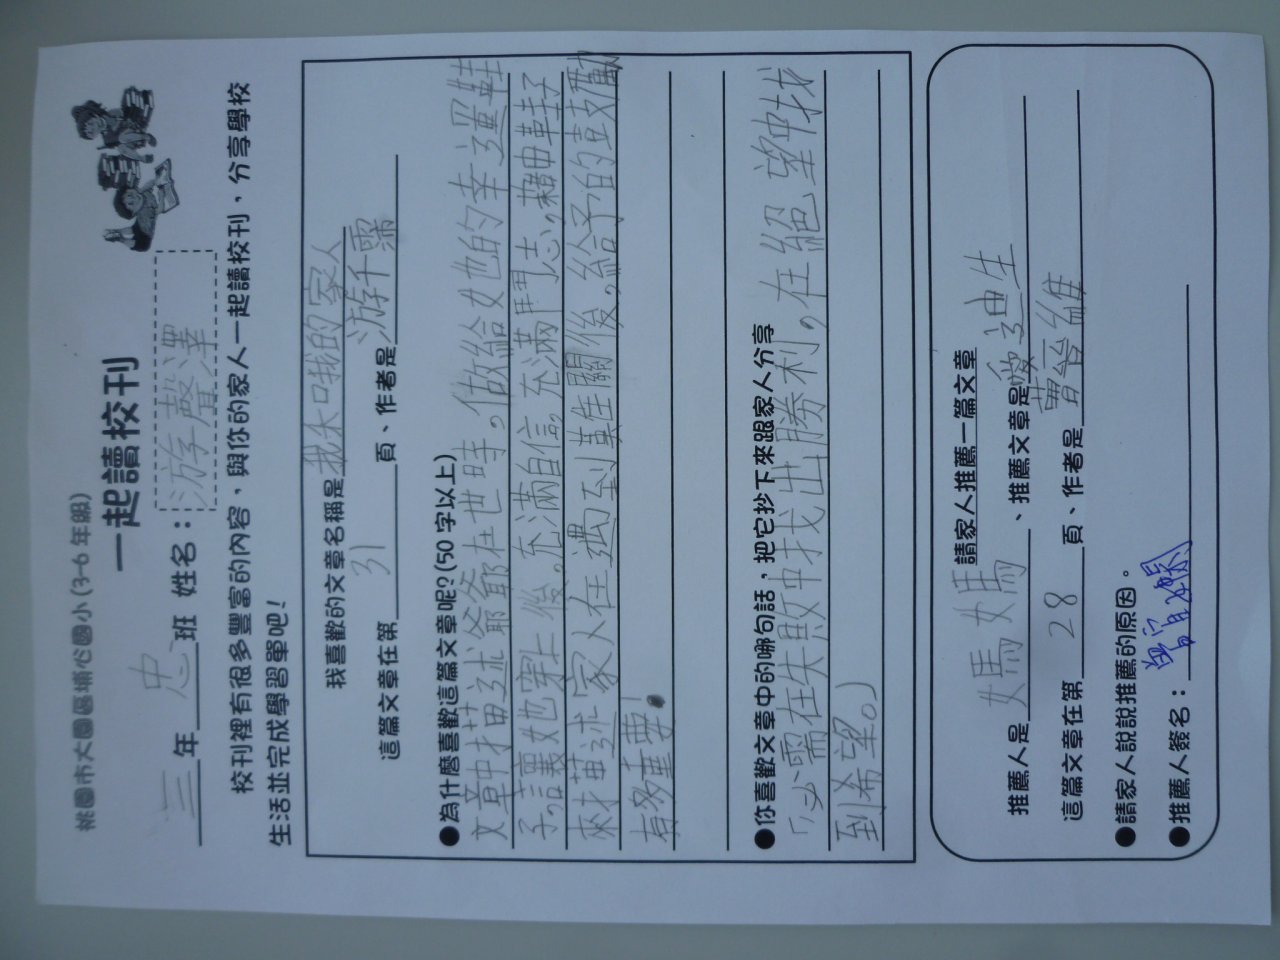 桃園市大園區埔心國小(3-6年級)
一起讀校刊
三年忠班 姓名：游聲澤
校刊裡有很多豐富的內容，與你的家人一起讀校刊，分享學校
生活並完成學習單吧！
我喜歡的文章名稱是我和我的家人
這篇文章在第31頁、作者是游千霈
●為什麼喜歡這篇文章呢?(50字以上)
文章中描述爺爺在世時，做給她的幸運鞋
子，讓她穿上後，充滿自信，充滿鬥志，藉由鞋子
來描述家人在遇到難關後，給予的鼓勵
有多重要！
●你喜歡文章中的哪句話，把它抄下來跟家人分享
「必需在失敗中找出勝利，在絕望中找
到希望。」
請家人推薦一篇文章
推薦人是媽媽、推薦文章是愛迪生
這篇文章在第28頁、作者是曹晉維
●請家人說說推薦的原因。
●推薦人簽名：